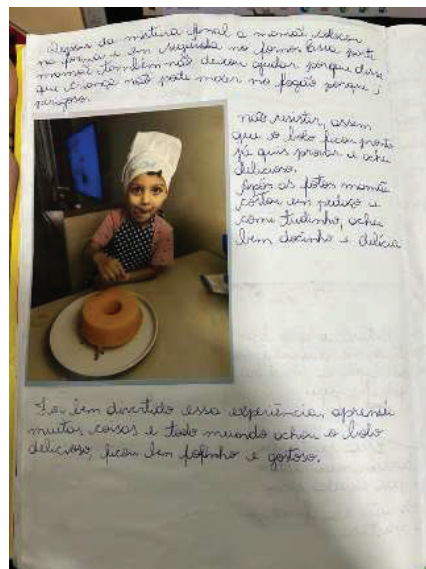 Depois da mistura final a mamãe colocou
na forma e em seguida no forno. Essa parte
mamãe também não deixou ajudar porque disse
que criança não pode mexer no fogão porque é
perigoso.
não resistir, assim
que o bolo ficou pronto
já quis provar e achei
delicioso.
Após as fotos mamãe
cortou um pedaço e
comi tudinho, achei
bem docinho e delícia
Foi bem divertido essa experiência, aprendi
muitas coisas e todo mundo achou o bolo
delicioso, ficou bem fofinho e gostoso.